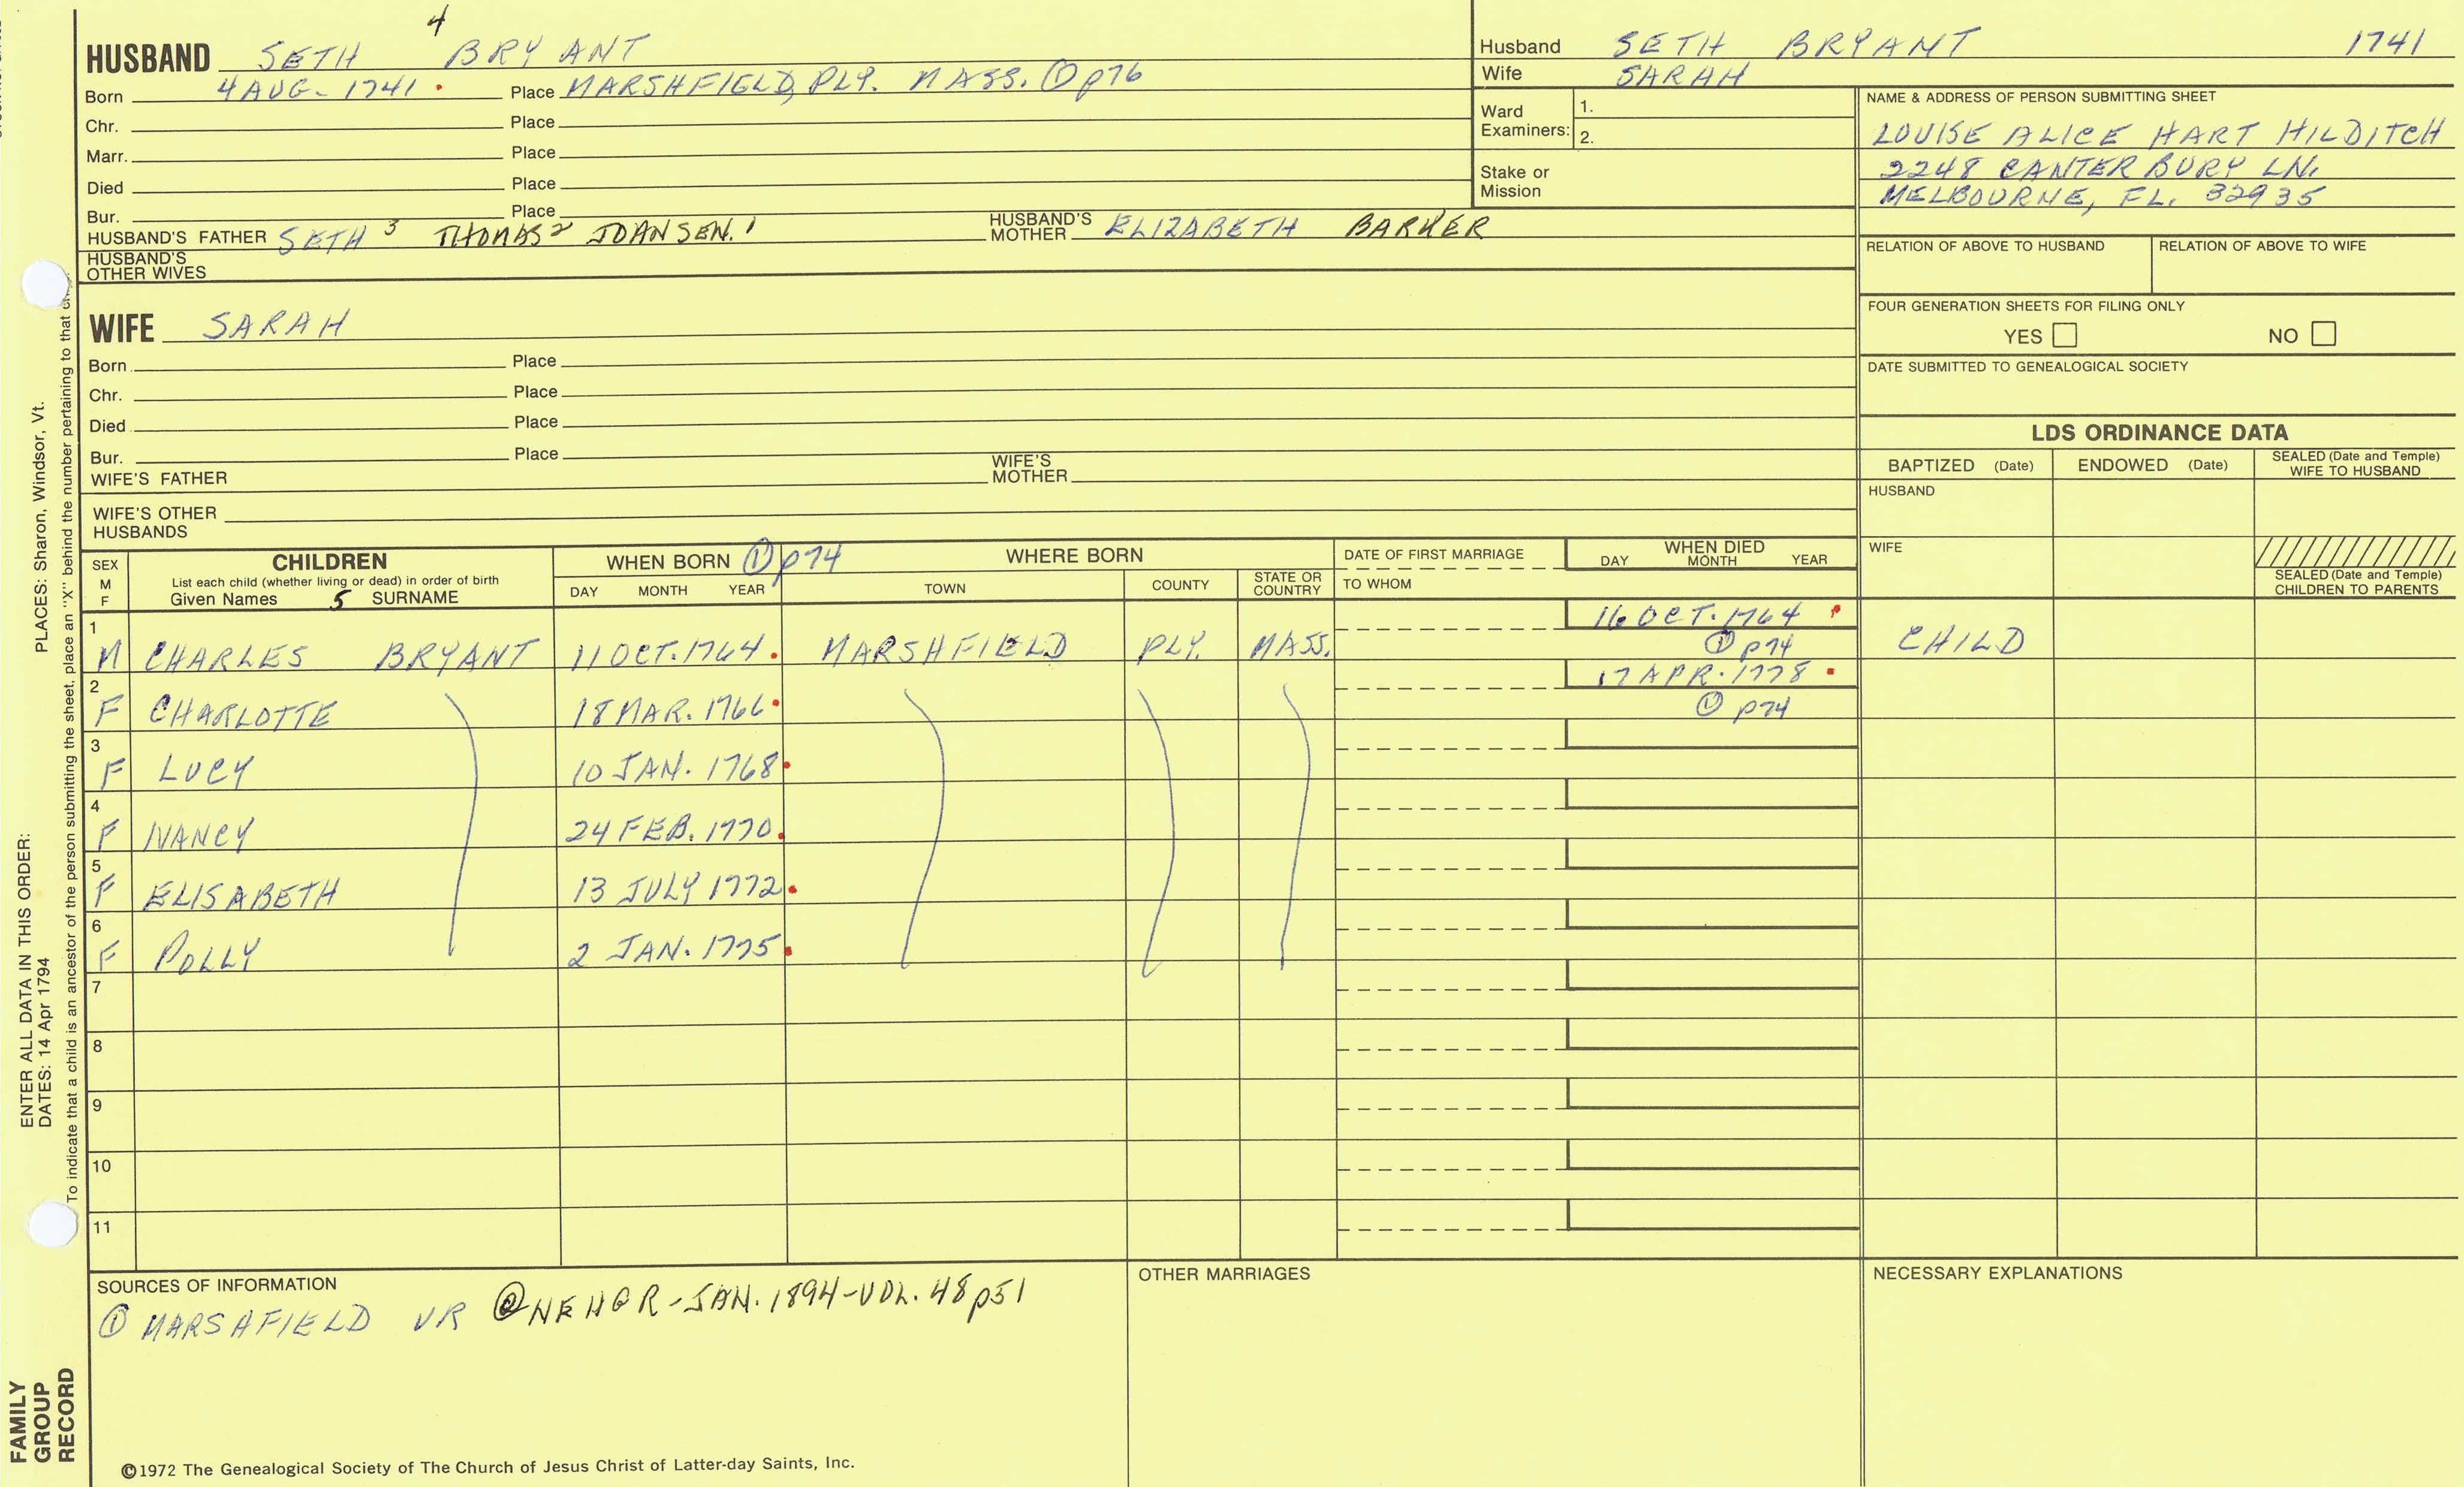 HUSBAND SETH 4 BRYANT
Born 4 AUG. 1741 . Place MARSHFIELD, PLY. MASS. ① p76
Chr. Place
Marr. Place
Died Place
Bur. Place
HUSBAND'S FATHER SETH 3 THOMAS 2 JOANSEN. 1 HUSBAND'S MOTHER ELIZABETH BARKER
HUSBAND'S OTHER WIVES
WIFE SARAH
Born Place
Chr. Place
Died Place
Bur. Place
WIFE'S FATHER WIFE'S MOTHER
WIFE'S OTHER HUSBANDS
Husband SETH BRYANT 1741
Wife SARAH
Ward Examiners: 1.
2.
Stake or Mission
NAME & ADDRESS OF PERSON SUBMITTING SHEET
LOUISE ALICE HART HILDITCH
2248 CANTERBURY LN.
MELBOURNE, FL. 32935
RELATION OF ABOVE TO HUSBAND RELATION OF ABOVE TO WIFE
FOUR GENERATION SHEETS FOR FILING ONLY
YES NO
DATE SUBMITTED TO GENEALOGICAL SOCIETY
LDS ORDINANCE DATA
BAPTIZED (Date) ENDOWED (Date) SEALED (Date and Temple) WIFE TO HUSBAND
HUSBAND
WIFE
SEALED (Date and Temple) CHILDREN TO PARENTS
SEX M F CHILDREN WHEN BORN ① p74 WHERE BORN DATE OF FIRST MARRIAGE WHEN DIED
List each child (whether living or dead) in order of birth
Given Names 5 SURNAME DAY MONTH YEAR TOWN COUNTY STATE OR COUNTRY TO WHOM DAY MONTH YEAR
1 M CHARLES BRYANT 11 OCT. 1764. MARSHFIELD PLY. MASS. 16 OCT. 1764 ① p74 CHILD
2 F CHARLOTTE 18 MAR. 1766. 17 APR. 1778 . ① p74
3 F LUCY 10 JAN. 1768.
4 F NANCY 24 FEB. 1770.
5 F ELISABETH 13 JULY 1772.
6 F POLLY 2 JAN. 1775.
7
8
9
10
11
SOURCES OF INFORMATION
① MARSAFIELD VR ② NEHGR-JAN. 1894-VOL. 48 p51
OTHER MARRIAGES
NECESSARY EXPLANATIONS
©1972 The Genealogical Society of The Church of Jesus Christ of Latter-day Saints, Inc.
FAMILY GROUP RECORD
ENTER ALL DATA IN THIS ORDER:
DATES: 14 Apr 1794 PLACES: Sharon, Windsor, Vt.
To indicate that a child is an ancestor of the person submitting the sheet, place an "X" behind the number pertaining to that